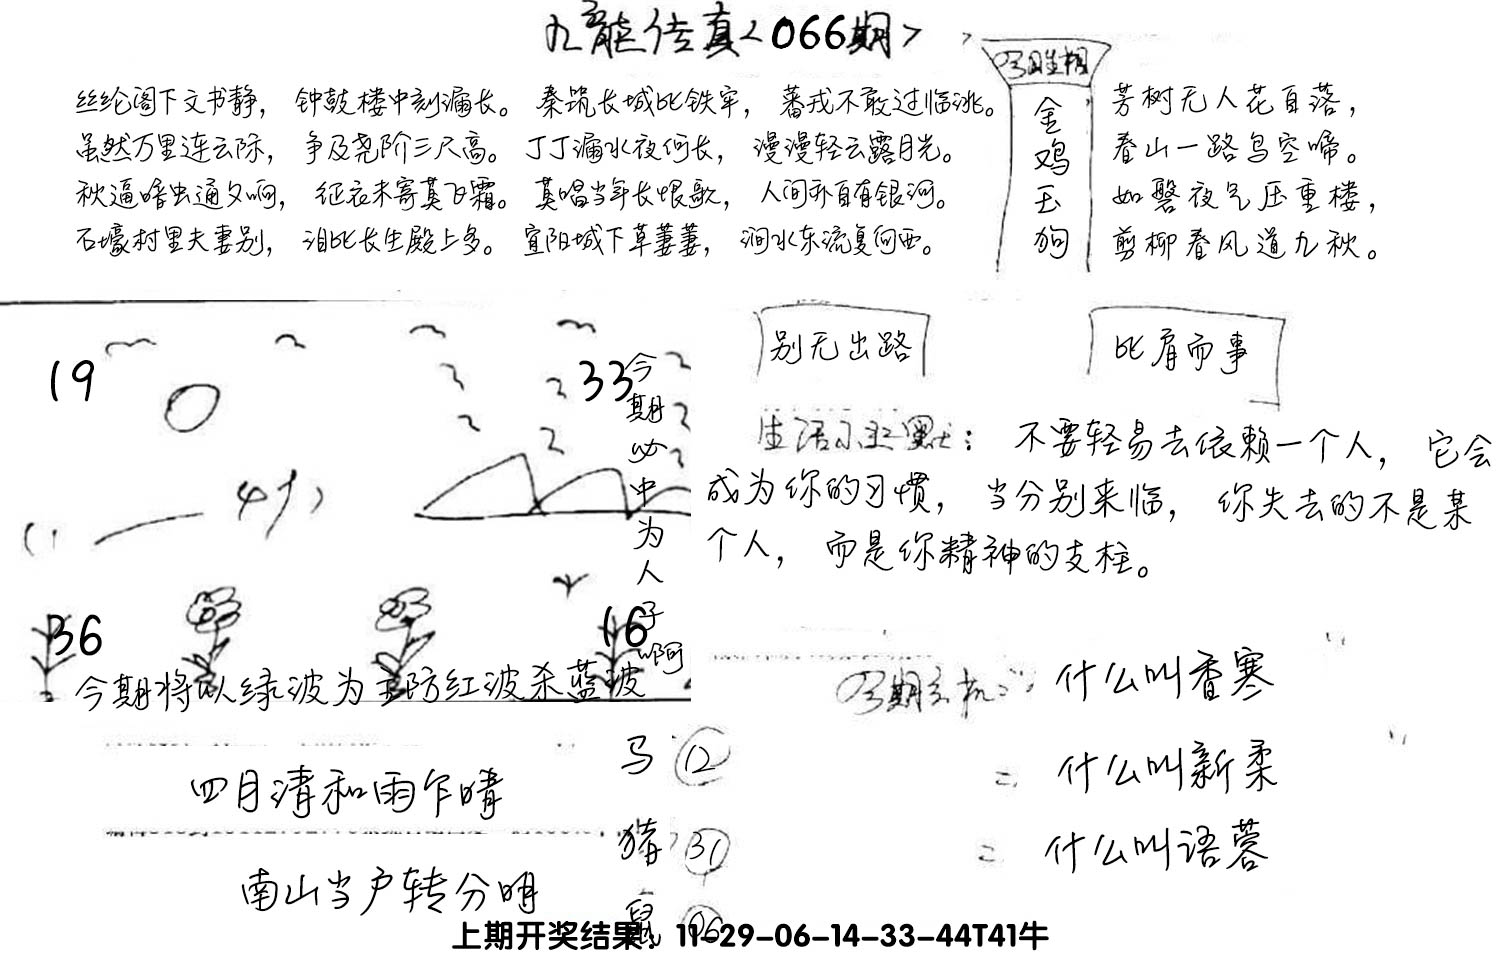 九龍传真<066期>
丝纶阁下文书静，钟鼓楼中刻漏长。秦筑长城比铁牢，蕃戎不敢过临洮。
虽然万里连云际，争及尧阶三尺高。丁丁漏水夜何长，漫漫轻云露月光。
秋逼暗虫通夕响，征衣未寄莫飞霜。莫唱当年长恨歌，人间亦自有银河。
石壕村里夫妻别，泪比长生殿上多。宜阳城下草萋萋，涧水东流复向西。
今期生相
金鸡玉狗
芳树无人花自落，
春山一路鸟空啼。
如磬夜气压重楼，
剪柳春风道九秋。
19
33
今期必中为人子啊
36
16
今期将以绿波为主防红波杀蓝波
别无出路
比肩而事
生活小幽默：不要轻易去依赖一个人，它会
成为你的习惯，当分别来临，你失去的不是某
个人，而是你精神的支柱。
四月清和雨乍晴
南山当户转分明
马 12
猪 31
鼠 06
今期玄机一：什么叫香寒
二 什么叫新柔
二 什么叫语蓉
上期开奖结果：11-29-06-14-33-44T41牛